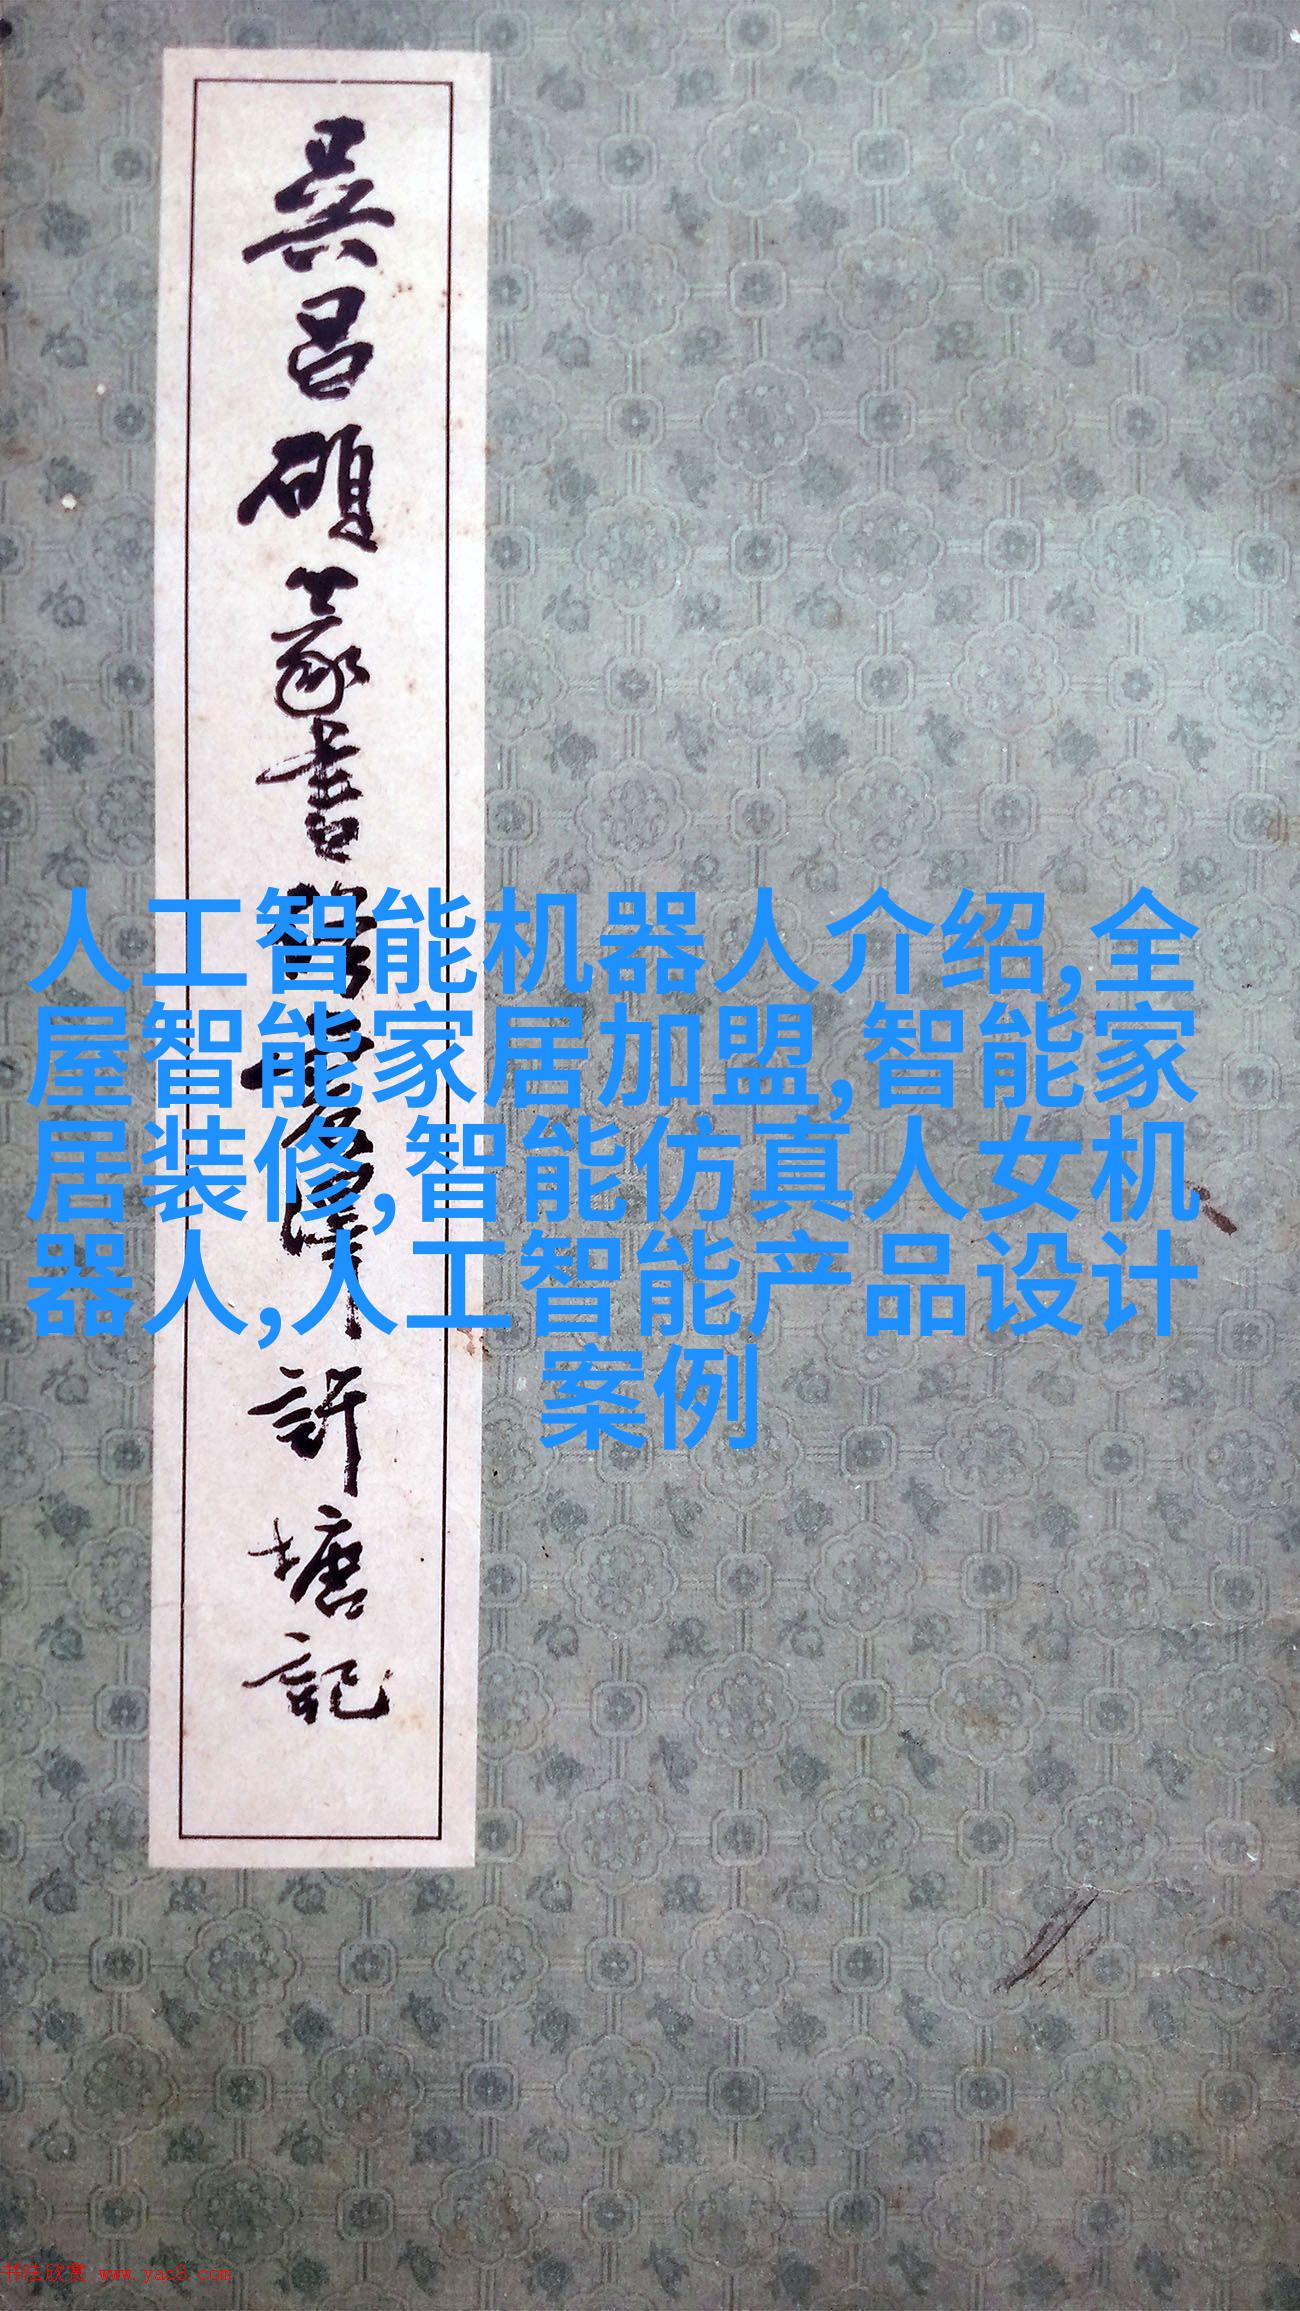 吴昌硕篆书
許塘記
人工智能机器人介绍,全
屋智能家居加盟,智能家
居装修,智能仿真人女机
器人,人工智能产品设计
案例
书法欣赏 www.yac8.com